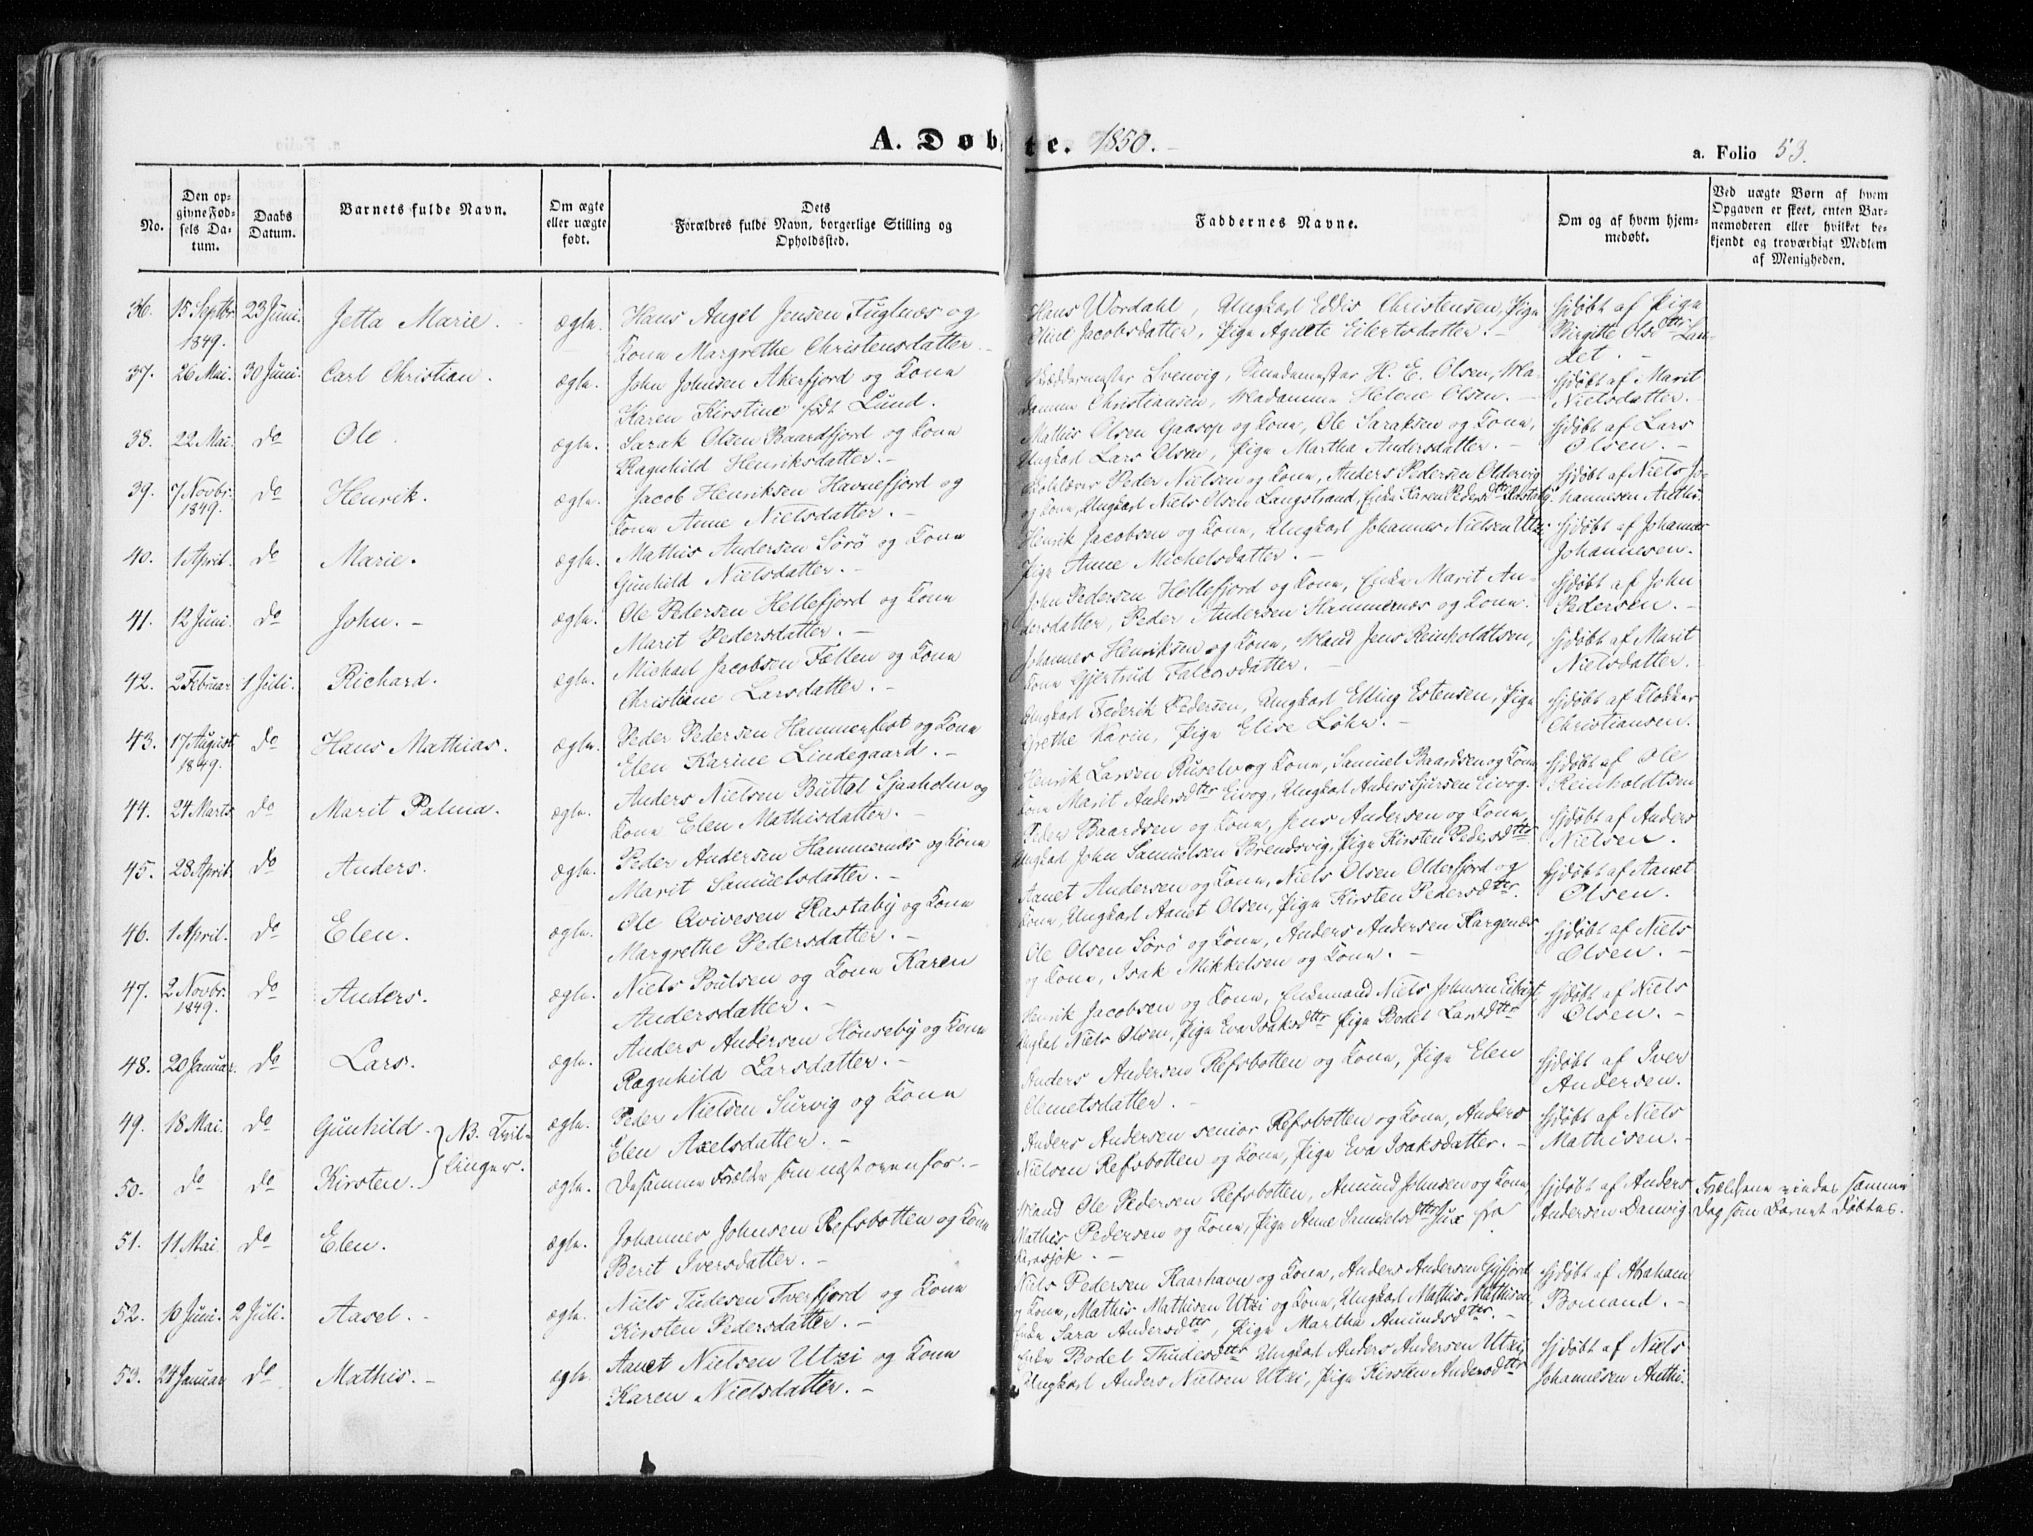 A. Døbte. 1850.-
a. Folio 53.
No.
Den opgivne Fødsels Datum.
Daabs Datum.
Barnets fulde Navn.
Om ægte eller uægte født.
Dets Forældres fulde Navn, borgerlige Stilling og Opholdssted.
Faddernes Navne.
Om og af hvem hjemmedøbt.
Ved uægte Børn af hvem Opgaven er skeet, enten Barnemoderen eller hvilket bekjendt og troværdigt Medlem af Menigheden.
36. 15 Septbr. 1849. 23 Juni. Jetta Marie. ægte.
Hans Angel Jensen Fuglnæs og
Kone Margrethe Christensdatter.-
Hans Wordahl, Ungkarl Eddis Christensen, Pige
Oline Jacobsdatter, Pige Agnete Eilertsdatter.-
hjdøbt af Pige
Birgitte Olsdtr
37. 26 Mai. 30 Juni. Carl Christian. ægte.
John Johnsen Akerfjord og Kone
Karen Kirstine født Lund.
Skræddermester Svenvig, Smedemester H. E. Olsen, Ma-
damme Christiansen, Madamme Helene Olsen.-
hjdøbt af Marit
Nielsdatter.
38. 22 Mai. do Ole. ægte.
Sarak Olsen Baardfjord og Kone
Ragnhild Henriksdatter.-
Mathis Olsen Gaasop og Kone, Ole Saraksen og Kone,
Ungkarl Lars Olsen, Pige Martha Andersdatter.-
hjdøbt af Lars
Olsen.-
39. 7 Novbr. 1849. do Henrik. ægte.
Jacob Henriksen Havnefjord og
Kone Anne Nielsdatter.-
Skolelærer Peder Nielsen og Kone, Anders Pedersen Oldervig
og Kone, Ungkarl Niels Olsen Langstrand, Enke Karen Pedersdtr Rastaby.
hjdøbt af Niels Jo-
hannesen Anthi.
40. 1 April. do Marie. ægte.
Mathis Andersen Sørø og Kone
Gunhild Nielsdatter.-
Henrik Jacobsen og Kone, Ungkarl Johannes Nielsen Utzi
Pige Anne Michelsdatter.-
hjdøbt af Johannes
Johannesen.
41. 12 Juni. do John.- ægte.
Ole Pedersen Hellefjord og Kone
Marit Pedersdatter.-
John Pedersen Hellefjord og Kone, Enke Marit An-
dersdatter, Peder Andersen Hammernæs og Kone.
hjdøbt af John
Pedersen.-
42. 2 Februar 1 Juli. Richard. ægte.
Michael Jacobsen Fallen og Kone
Christiane Larsdatter.-
Johannes Henriksen og Kone, Mand Jens Reinholdtsen,
Kone Gjertrud Falcorsdatter.-
hjdøbt af Marit
Nielsdatter.
43. 17 August 1849. do Hans Mathias. ægte.
Peder Pedersen Hammerfest og Kone
Elen Karine Lindegaard.-
Ungkarl Federik Pedersen, Ungkarl Elling Estensen, Pige
Grethe Karin, Pige Elise Løhr.-
hjdøbt af Klokker
Christiansen.
44. 24 Marts do Marit Palma. ægte.
Anders Nielsen Buttal Sjaaholm og
Kone Elen Mathisdatter.-
Henrik Larsen Ruselv og Kone, Samuel Baardsen og Kone
Kone Marit Andersdtr Eivog, Ungkarl Anders Sjursen Eivog.
hjdøbt af Ole
Reinholdtsen
45. 28 April. do Anders. ægte.
Peder Andersen Hammernæs og Kone
Marit Samuelsdatter.-
Peder Baardsen og Kone, Jens Andersen og Kone,
Ungkarl John Samuelsen Brendsvig, Pige Kirsten Pedersdtr
hjdøbt af Anders
Nielsen.
46. 1 April. do Elen. ægte.
Ole Qvivesen Rastaby og Kone
Margrethe Pedersdatter.-
Aanet Andersen og Kone, Niels Olsen Olderfjord og
Kone, Ungkarl Aanet Olsen, Pige Kirsten Pedersdtr.
hjdøbt af Aanet
Olsen.
47. 2 Novbr. 1849. do Anders. ægte.
Niels Poulsen og Kone Karen
Andersdatter.-
Ole Olsen Sørø og Kone, Anders Andersen Kargenæs
og Kone, Isak Mikkelsen og Kone.-
hjdøbt af Niels
Olsen.-
48. 20 Januar. do Lars. ægte.
Anders Andersen Hønseby og Kone
Ragnhild Larsdatter.-
Henrik Jacobsen og Kone, Enkemand Niels Johnsen
Ungkarl Niels Olsen, Pige Eva Isaksdtr Pige Bodel Larsdtr
hjdøbt af Niels
Olsen.-
49. 18 Mai. do Gunhild. ægte.
NB. Tvil-
linger.
Peder Nielsen Survig og Kone
Elen Axelsdatter.-
Anders Andersen Refsbotten og Kone, Pige Elen
Clemetsdatter.-
hjdøbt af Iver
Andersen.
50. do do Kirsten. ægte.
Desamme Forældre som næst ovenfor.-
Anders Andersen senior Refsbotten og Kone, Anders
Nielsen Refsbotten og Kone, Pige Eva Isaksdatter.-
hjdøbt af Niels
Mathisen.-
51. 11 Mai. do Elen. ægte.
Johannes Johnsen Refsbotten og Kone
Berit Iversdatter.-
Mand Ole Pedersen Refsbotten, Amund Johnsen og Kone
Mathis Pedersen og Kone, Pige Anne Samuelsdtr fra
Karasjok.-
hjdøbt af Anders
Andersen Danvig
Forældrene viedes samme
Dag som Barnet døbtes.
52. 10 Juni. 2 Juli. Aasel.- ægte.
Niels Tudesen Tverfjord og Kone
Kirsten Pedersdatter.-
Niels Pedersen Kaarhavn og Kone, Anders Andersen Gyfjord
og Kone, Mathis Mathisen Utzi og Kone, Ungkarl Mathis Mathisen
Enke Sara Andersdtr, Pige Martha Amundsdtr.
hjdøbt af Abraham
Bomand.-
53. 24 Januar do Mathis.- ægte.
Aanet Nielsen Utzi og Kone
Karen Nielsdatter.-
Enke Bodel Thudesdtr Ungkarl Anders Andersen Utzi,
Ungkarl Anders Nielsen Utzi, Pige Kirsten Andersdtr
hjdøbt af Niels
Johannesen Anthi.